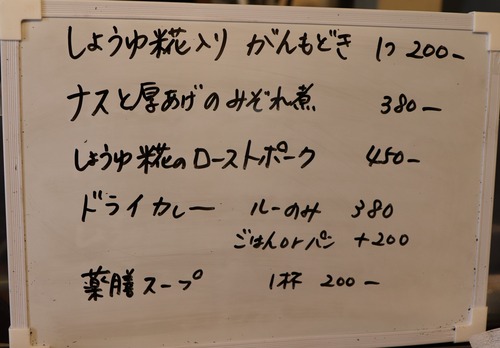 しょうゆ糀入り がんもどき 1つ 200ー
ナスと厚あげのみぞれ煮 380ー
しょうゆ糀のローストポーク 450ー
ドライカレー ルーのみ 380
ごはんorパン +200
薬膳スープ 1杯 200ー